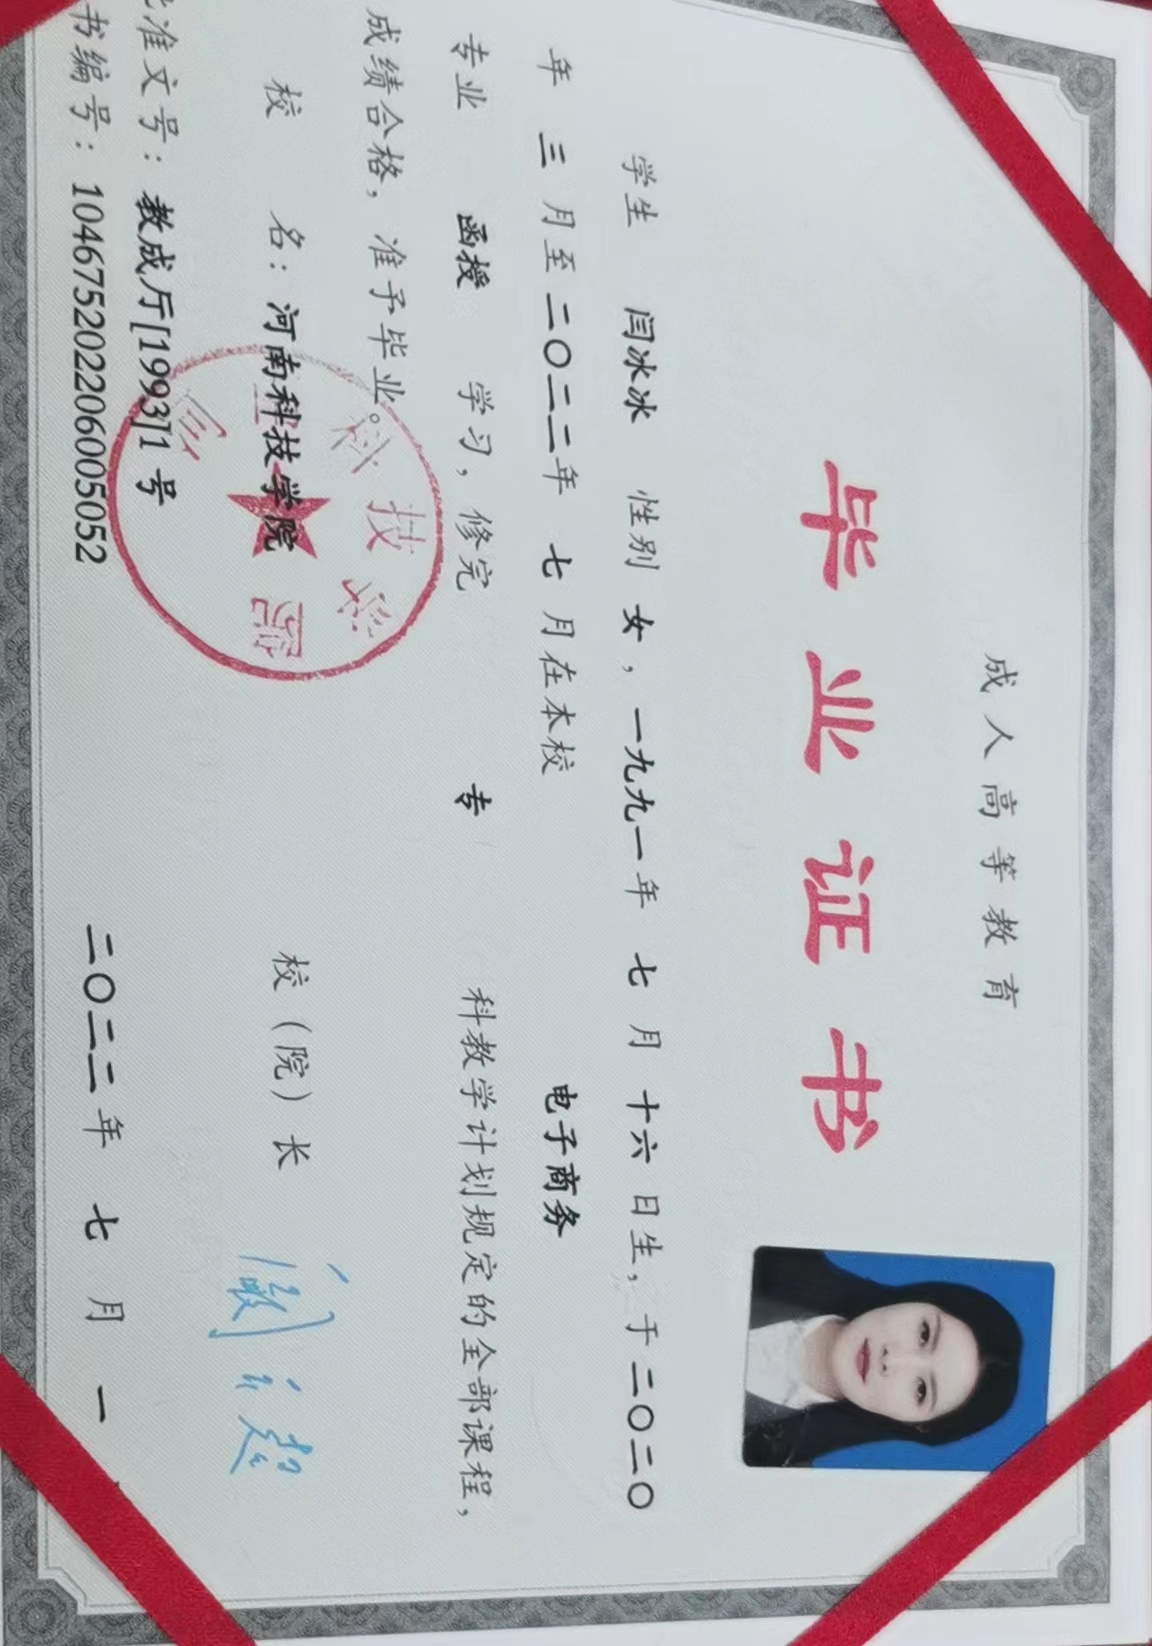 成人高等教育
毕业证书
学生 闫冰冰 性别 女，一九九一年 七 月 十六 日生，于二〇二〇
年 三 月至二〇二二年 七 月在本校 电子商务
专业 函授 学习，修完 专 科教学计划规定的全部课程，
成绩合格，准予毕业。
校 名：河南科技学院 校（院）长
准文号：教成厅[1993]1号
书编号：104675202206005052 二〇二二年 七 月 一
科技学院